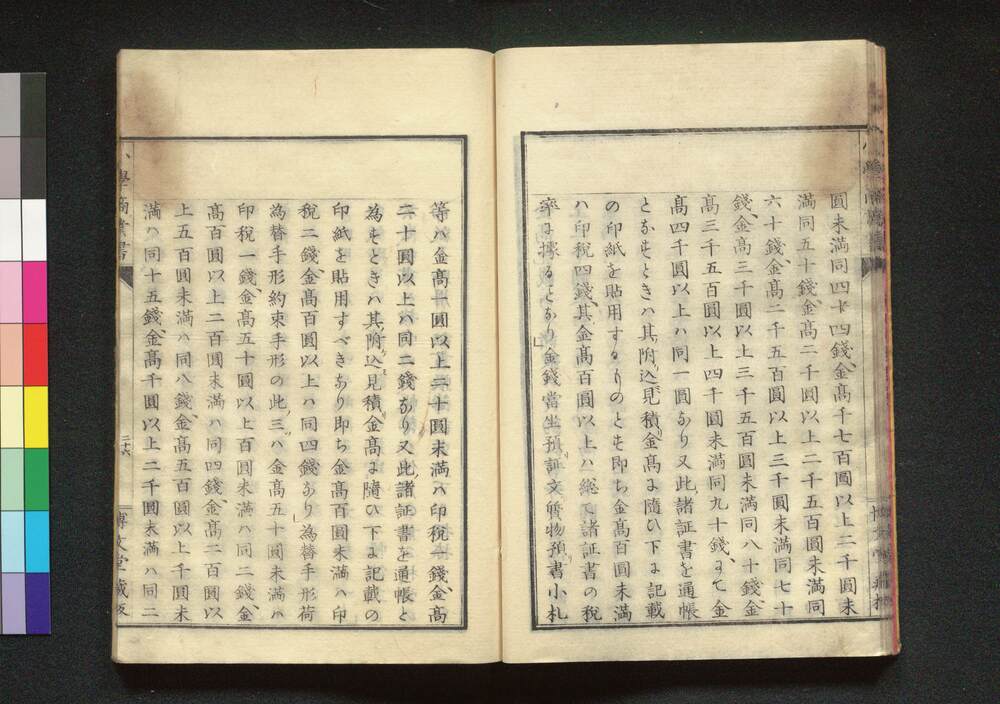 圓未満同四十四錢、金髙千七百圓以上二千圓未
満同五十錢、金髙二千圓以上二千五百圓未満同
六十錢、金髙二千五百圓以上三千圓未満同七十
錢、金髙三千圓以上三千五百圓未満同八十錢、金
髙三千五百圓以上四千圓未満同九十錢、まて金
髙四千圓以上ハ同一圓なり又此諸証書を通帳
となすときハ其附込見積金髙に隨ひ下に記載
の印紙を貼用するものとす即ち金髙百圓未満
ハ印税四錢、其金髙百圓以上ハ総て諸証書の税
率に據るとなり金錢當坐預証文貨物預書小札
等ハ金髙一圓以上二十圓未満ハ印税一錢、金髙
二十圓以上ハ同二錢なり又此諸証書を通帳と
為すときハ其附込見積金髙に隨ひ下に記載の
印紙を貼用すべきあり即ち金髙百圓未満ハ印
税二錢、金髙百圓以上ハ同四錢あり為替手形荷
為替手形約束手形の此三ハ金髙五十圓未満ハ
印税一錢、金髙五十圓以上百圓未満ハ同二錢、金
髙百圓以上二百圓未満ハ同四錢、金髙二百圓以
上五百圓未満ハ同八錢金髙五百圓以上千圓未
満ハ同十五錢、金髙千圓以上二千圓未満ハ同二
二十六
博文堂藏板